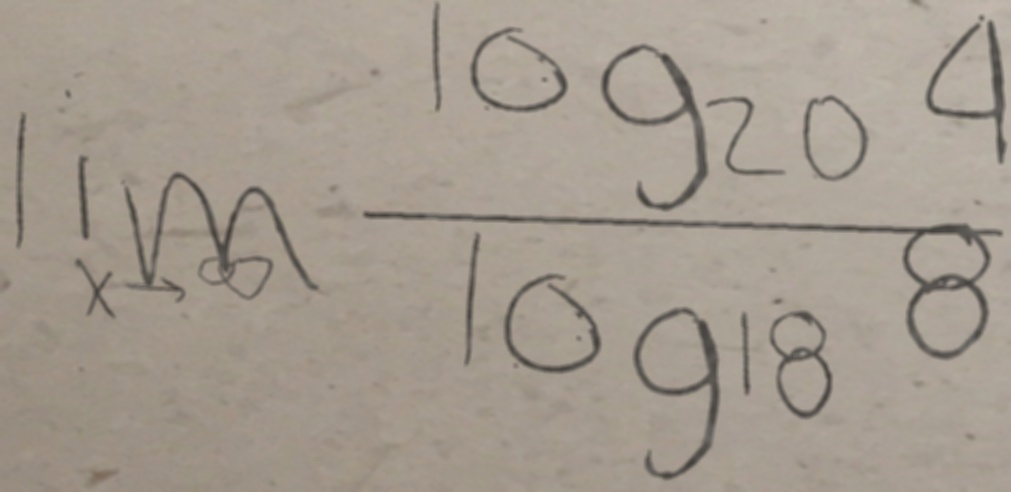 lim log₂₀ 4
x→∞ log₁₈ 8